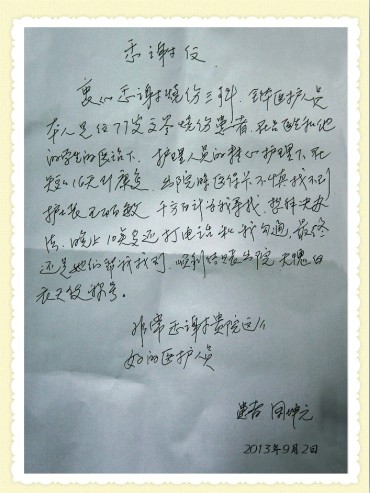 感谢信
衷心感谢烧伤三科 全体医护人员
本人是位77岁交答烧伤患者 在吕医生和他
的学生的医治下 护理人员的精心护理下 在
短短16天到康复 出院时医保卡不慎找不到
护士长 千方百计给我寻找 想种种办
法 晚上10点多还打电话和我沟通 最终
还是她们帮我找到 顺利结账出院 无愧白
衣天使称号。
非常感谢贵院这么
好的医护人员
患者 周坤元
2013年9月2日